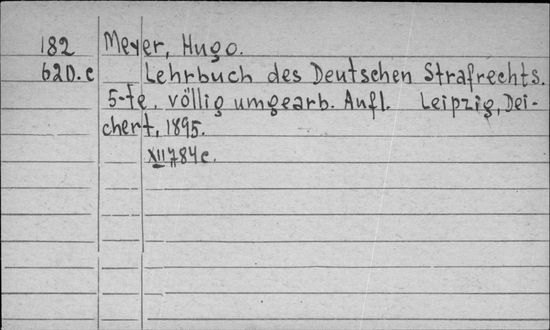 182 Meyer, Hugo.
620.c Lehrbuch des Deutschen Strafrechts.
5-te, völlig umgearb. Aufl. Leipzig, Dei-
chert, 1895.
XII 784 c.